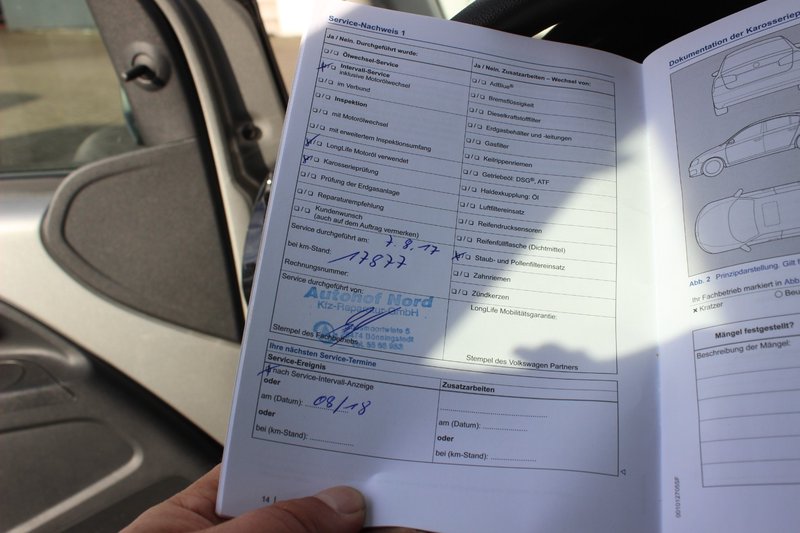 Service-Nachweis 1
Ja / Nein, Durchgeführt wurde:
Ölwechsel-Service
Intervall-Service
inklusive Motorölwechsel
im Verbund
Inspektion
mit Motorölwechsel
mit erweitertem Inspektionsumfang
LongLife Motoröl verwendet
Karosserieprüfung
Prüfung der Erdgasanlage
Reparaturempfehlung
Kundenwunsch
(auch auf dem Auftrag vermerken)
Service durchgeführt am: 7.9.17
bei km-Stand: 17877
Rechnungsnummer:
Service durchgeführt von:
Autohof Nord
Kfz-Reparatur GmbH
Stempel des Fachbetriebs
Ja / Nein, Zusatzarbeiten – Wechsel von:
AdBlue®
Bremsflüssigkeit
Dieselkraftstofffilter
Erdgasbehälter und -leitungen
Gasfilter
Keilrippenriemen
Getriebeöl: DSG®, ATF
Haldexkupplung: Öl
Luftfiltereinsatz
Reifendrucksensoren
Reifenfüllflasche (Dichtmittel)
Staub- und Pollenfiltereinsatz
Zahnriemen
Zündkerzen
LongLife Mobilitätsgarantie:
Stempel des Volkswagen Partners
Ihre nächsten Service-Termine
Service-Ereignis
nach Service-Intervall-Anzeige
oder
am (Datum): 08/18
oder
bei (km-Stand):
Zusatzarbeiten
am (Datum):
oder
bei (km-Stand):
14
Dokumentation der Karosseriep
Abb. 2 Prinzipdarstellung. Gilt f
Ihr Fachbetrieb markiert in Abb
x Kratzer
Beu
Mängel festgestellt?
Beschreibung der Mängel: